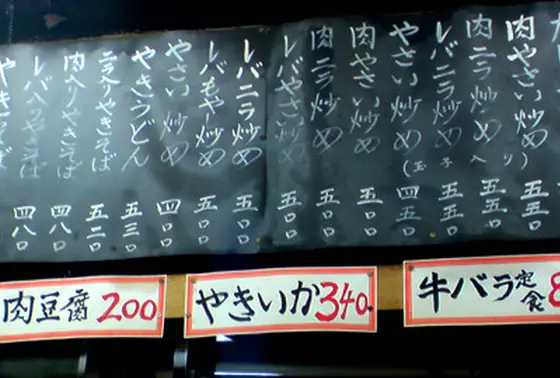 肉やさい炒め 五五〇
肉ニラ炒め 五五〇
レバニラ炒め 五五〇
やさい炒め 四五〇
(玉子入り)
肉やさい炒め 五〇〇
肉ニラ炒め 五〇〇
レバやさい炒め 五〇〇
レバニラ炒め 五〇〇
レバもやし炒め 五〇〇
やさい炒め 四〇〇
やきうどん 五三〇
ニラ入りやきそば 五二〇
肉入りやきそば 四八〇
レバ入りやきそば 四八〇
やきそば
肉豆腐 200
やきいか 340
牛バラ定食